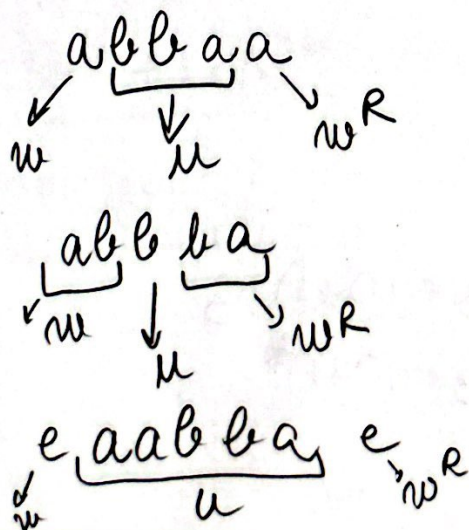 abbaa
w u wR
abbba
w u wR
e aabba e
w u wR